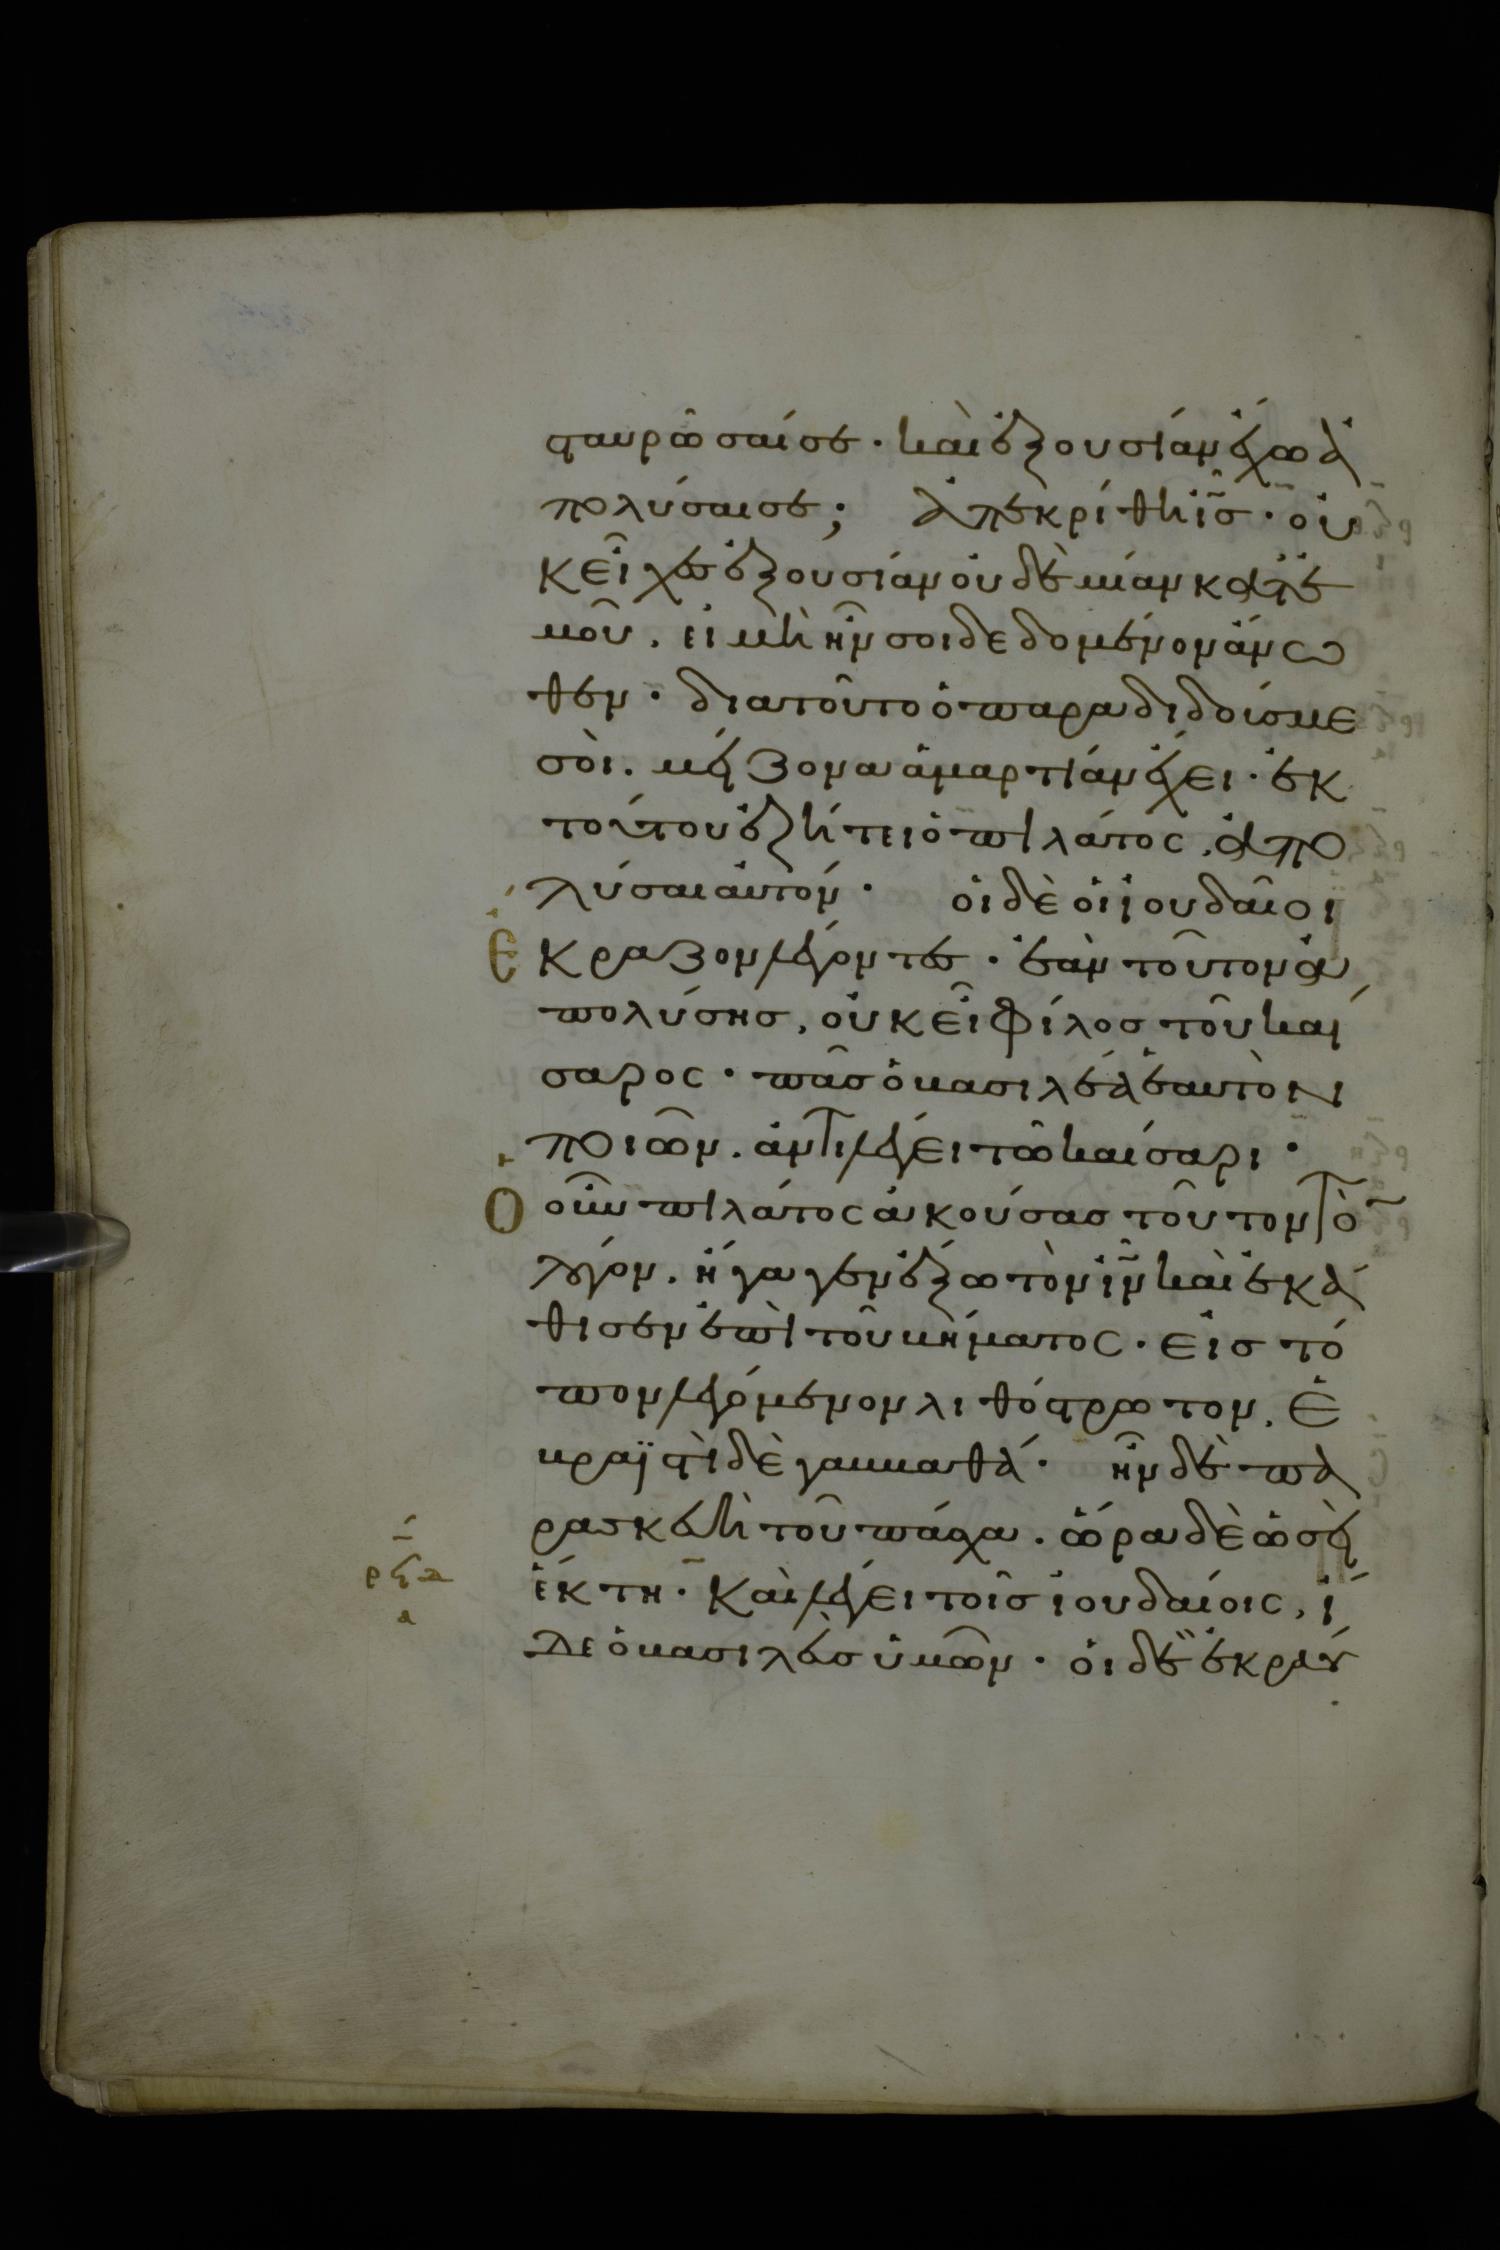 σταυρῶσαί σε · καὶ ἐξουσίαν ἔχω ἀ
πολύσαι σε ; ἀπεκρίθη ἰ̅σ̅ · οὐ
κ εἶχες ἐξουσίαν οὐδεμίαν κατ' ἐ
μοῦ . εἰ μὴ ἦν σοι δεδομένον ἄνω
θεν · δια τοῦτο ὁ παραδιδούσ με
σὸι . μείζονα ἁμαρτίαν ἔχει · ἐκ
τούτου ἐζήτει ὁ πιλάτος , ἀπο
λύσαι αὐτόν · οἱ δὲ ἰουδαῖοι
ἔκραζον λέγοντες · ἐὰν τοῦτον ἀ
πολύσησ , οὐκ εἶ φίλοσ τοῦ καί
σαρος · πᾶσ ὁ βασιλέα ἑαυτὸν
ποιῶν . ἀντιλέγει τῶ καίσαρι ·
Ὁ οὖν πιλάτος ἀκούσασ τοῦτον τὸ
λόγον . ἤγαγεν ἔξω τὸν ἰ̅ν̅ καὶ ἐκά
θισεν ἐπὶ τοῦ βήματος · εἰσ τό
πον λεγόμενον λιθόστρωτον . ἑ
βραϊστὶ δὲ γαββαθά · ἦν δὲ πα
ρασκευὴ τοῦ πάσχα . ὥρα δὲ ὡσεὶ
ἕκτη · καὶ λέγει τοῖσ ἰουδαίοις , ἴ
δε ὁ βασιλεὺσ ὑμῶν · οἱ δὲ ἐκραύ